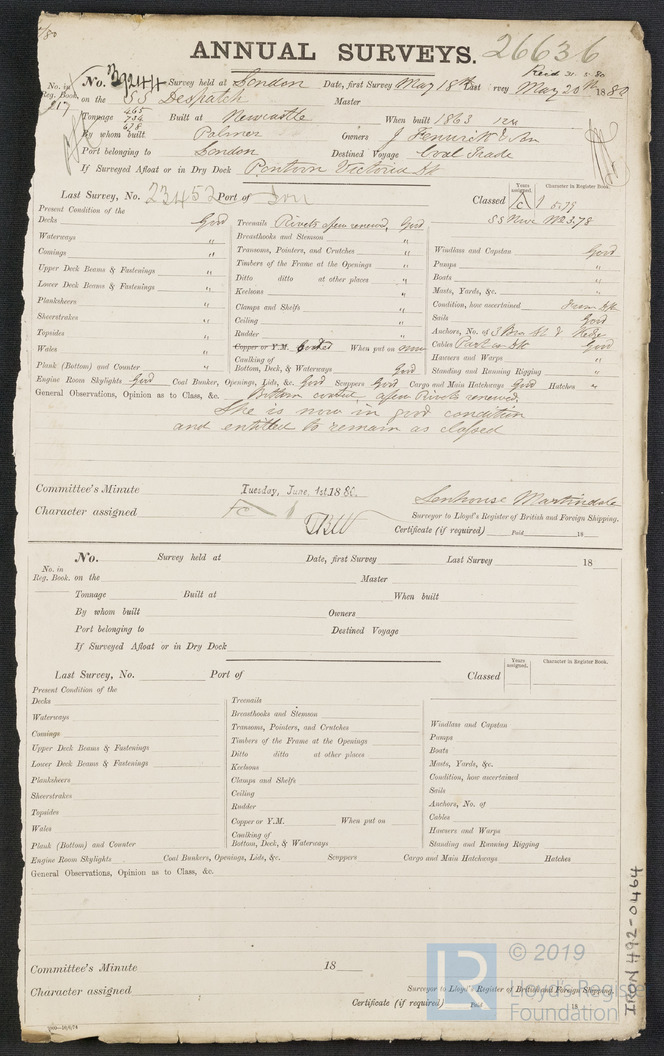 ANNUAL SURVEYS. 26636
Recd 31.5.80
No. 23244 Survey held at London Date, first Survey May 18th Last Survey May 20th 1880
No. in Reg. Book. 217 on the SS Despatch Master
Tonnage 465 734 678 Built at Newcastle When built 1863
By whom built Palmer Owners J Fenwick & Son
Port belonging to London Destined Voyage Coal Trade
If Surveyed Afloat or in Dry Dock Pontoon Victoria Dk
Last Survey, No. 23452 Port of Lon Classed
Years assigned. Character in Register Book.
5.79
SS Nwc No 2 3.78
Present Condition of the
Decks Good Treenails Rivets often renewed, Good
Waterways " Breasthooks and Stemson "
Comings " Transoms, Pointers, and Crutches " Windlass and Capstan Good
Upper Deck Beams & Fastenings " Timbers of the Frame at the Openings " Pumps "
Lower Deck Beams & Fastenings " Ditto ditto at other places " Boats "
Planksheers " Keelsons " Masts, Yards, &c. "
Sheerstrakes " Clamps and Shelfs " Condition, how ascertained From Dk
Topsides " Ceiling " Sails Good
Wales " Rudder " Anchors, No. of 3 Bro St & Kedge
Copper or Y.M. Coated When put on now Cables Part on Dk Good
Plank (Bottom) and Counter " Caulking of Bottom, Deck, & Waterways Good Hawsers and Warps "
Standing and Running Rigging "
Engine Room Skylights Good Coal Bunker, Openings, Lids, &c. Good Scuppers Good Cargo and Main Hatchways Good Hatches "
General Observations, Opinion as to Class, &c. Bottom coated often Rivets renewed.
She is now in good condition
and entitled to remain as classed
Committee's Minute Tuesday, June, 1st. 1880.
Lenhouse Martindale
Character assigned
Surveyor to Lloyd's Register of British and Foreign Shipping.
Certificate (if required) Paid 18
No. Survey held at Date, first Survey Last Survey 18
No. in Reg. Book. on the Master
Tonnage Built at When built
By whom built Owners
Port belonging to Destined Voyage
If Surveyed Afloat or in Dry Dock
Last Survey, No. Port of Classed
Years assigned. Character in Register Book.
Present Condition of the
Decks Treenails
Waterways Breasthooks and Stemson
Comings Transoms, Pointers, and Crutches Windlass and Capstan
Upper Deck Beams & Fastenings Timbers of the Frame at the Openings Pumps
Lower Deck Beams & Fastenings Ditto ditto at other places Boats
Planksheers Keelsons Masts, Yards, &c.
Sheerstrakes Clamps and Shelfs Condition, how ascertained
Topsides Ceiling Sails
Wales Rudder Anchors, No. of
Copper or Y.M. When put on Cables
Plank (Bottom) and Counter Caulking of Bottom, Deck, & Waterways Hawsers and Warps
Standing and Running Rigging
Engine Room Skylights Coal Bunkers, Openings, Lids, &c. Scuppers Cargo and Main Hatchways Hatches
General Observations, Opinion as to Class, &c.
Committee's Minute 18
Character assigned
Surveyor to Lloyd's Register of British and Foreign Shipping.
Certificate (if required) Paid 18
IRON 492-0464
LR © 2019
Lloyd's Register
Foundation